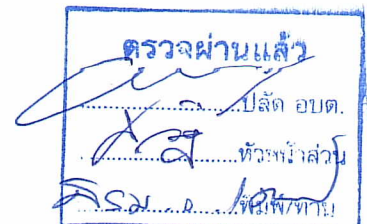 ตรวจผ่านแล้ว
....................ปลัด อบต.
....................หัวหน้าส่วน
....................พิมพ์/ทาน